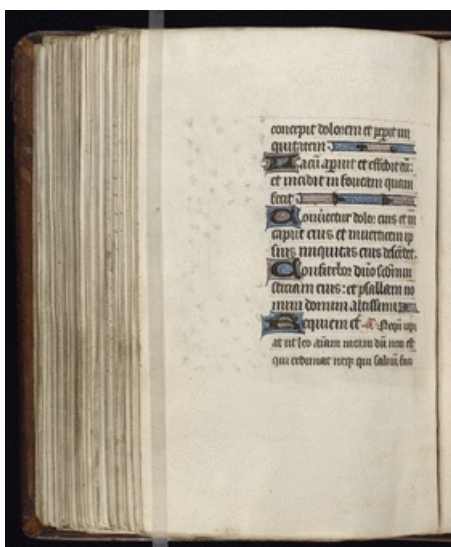 concepit dolorem et peperit ini
quitatem
Lacum aperuit et effodit eum:
et incidit in foveam quam
fecit
Convertetur dolor eius et in
caput eius et in verticem ip
sius iniquitas eius descendet.
Confitebor domino secundum ius
sticiam eius: et psallam no
mini domini altissimi
Requiem et. a. Nequando rapi
at ut leo animam meam dum non est
qui redimat neque qui salvum fac